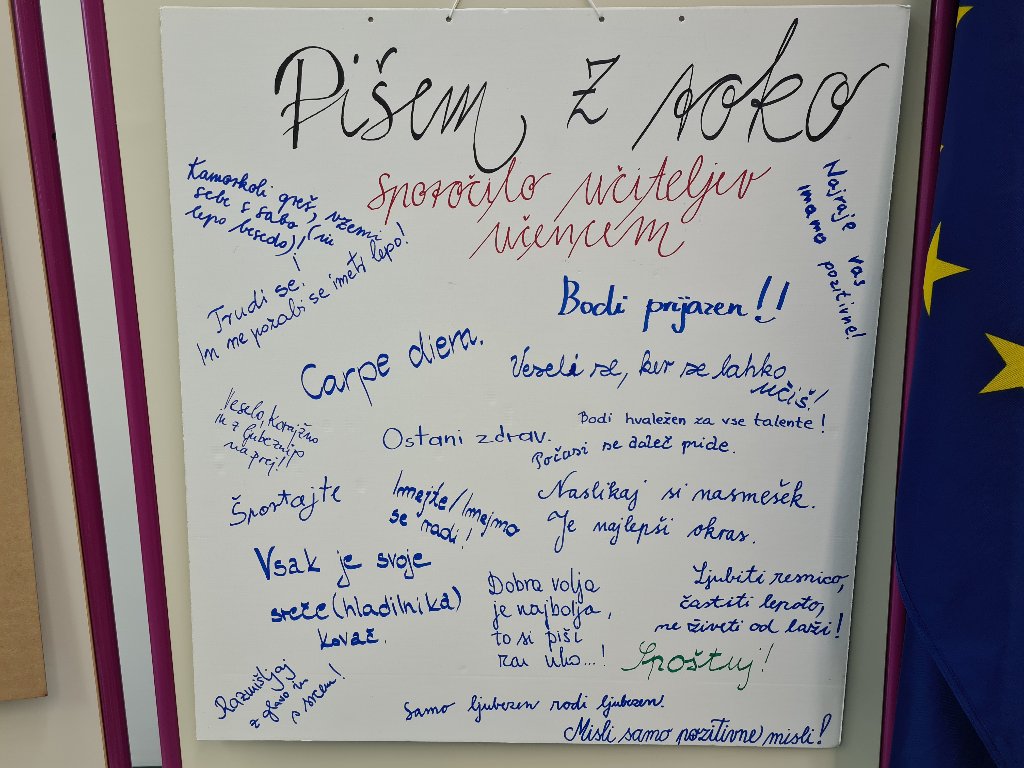 Pišem z roko
Sporočilo učiteljev
učencem
Kamorkoli greš, vzemi
sebe s sabo (in
lepo besedo)!
Najraje vas
imamo pozitivne!
Trudi se!
In ne pozabi se imeti lepo!
Bodi prijazen!!
Carpe diem.
Veseli se, ker se lahko
učiš!
Veselo, korajžno
in z ljubeznijo
naprej!!
Ostani zdrav.
Bodi hvaležen za vse talente!
Počasi se daleč pride.
Športajte
Imejte/Imejmo
se radi!
Naslikaj si nasmešek.
Je najlepši okras.
Vsak je svoje
sreče (hladilnika)
kovač.
Dobra volja
je najbolja,
to si piši
za uho...!
Ljubiti resnico,
častiti lepoto,
ne živeti od laži!
Spoštuj!
Razmišljaj
z glavo in
s srcem!
Samo ljubezen rodi ljubezen.
Misli samo pozitivne misli!